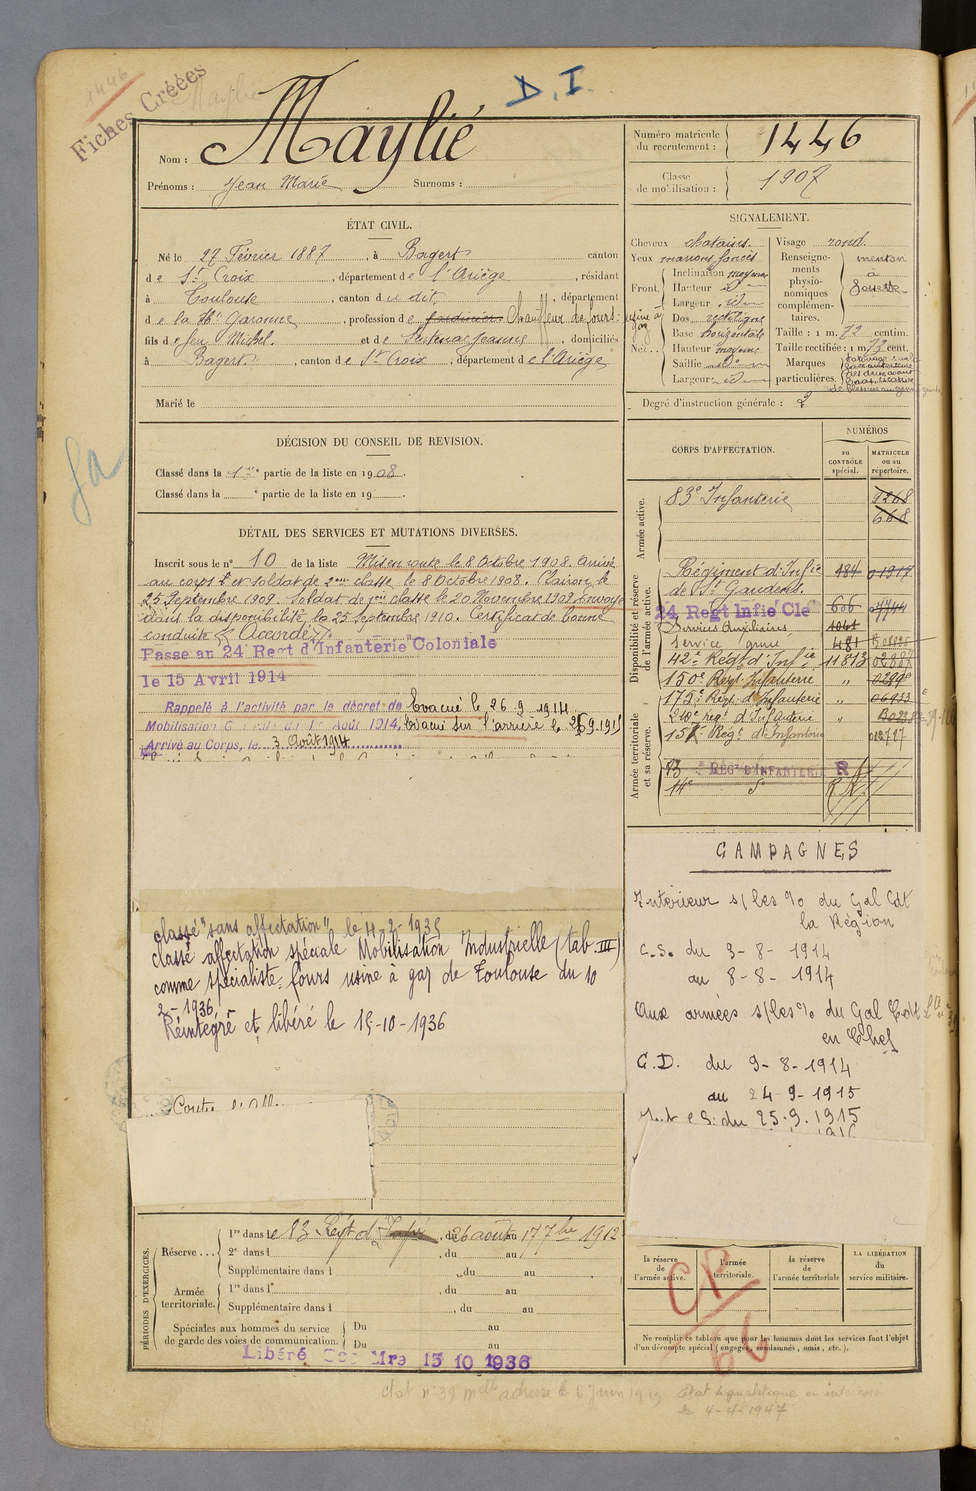 1446
Fiches Créées
D.I.
Nom : Maylié
Prénoms : Jean Marie Surnoms :
Numéro matricule du recrutement : 1446
Classe de mobilisation : 1907
ÉTAT CIVIL.
Né le 27 Février 1887, à Bagert canton
de St Croix, département de l'Ariège, résidant
à Toulouse, canton du dit, département
de la Hte Garonne, profession de Chauffeur de fours: usine à gaz
fils de feu Michel. et de Sentenac Jeanne, domiciliés
à Bagert, canton de St Croix département de l'Ariège
Marié le
SIGNALEMENT.
Cheveux chatains.
Yeux marrons foncés
Front. Inclinaison moyenne
Hauteur do
Largeur do
Nez. Dos rectiligne
Base horizontale
Hauteur moyenne
Saillie do
Largeur do
Visage rond.
Renseignements physionomiques complémentaires. menton à fossette
Taille : 1 m. 72 centim.
Taille rectifiée : 1 m. 73 cent.
Marques particulières.
Degré d'instruction générale : 2
DÉCISION DU CONSEIL DE REVISION.
Classé dans la 1re partie de la liste en 1908.
Classé dans la e partie de la liste en 19
DÉTAIL DES SERVICES ET MUTATIONS DIVERSES.
Inscrit sous le n° 10 de la liste Mis en route le 8 Octobre 1908. Arrivé
au corps et soldat de 2eme classe le 8 Octobre 1908. Clairon le
25 Septembre 1909. Soldat de 1ere classe le 20 Novembre 1909. Envoyé
dans la disponibilité le 25 Septembre 1910. Certificat de bonne
conduite "Accordé".
Passe au 24e Regt d'Infanterie Coloniale
le 15 Avril 1914
Rappelé à l'activité par le décret de Evacué le 26.9.1914
Mobilisation Générale du 1er Août 1914. Evacué sur l'arrière le 25.9.1915
Arrivé au Corps, le 3 Août 1914
classé "sans affectation" le 4-2-1935
classé affectation spéciale Mobilisation Industrielle (tab. III)
comme spécialiste: fours usine à gaz de Toulouse du 10
2-1936.
Réintégré et libéré le 15-10-1936
CORPS D'AFFECTATION.
NUMÉROS
au CONTRÔLE spécial.
MATRICULE ou au répertoire.
Armée active.
83e Infanterie 9268
668
Disponibilité et réserve de l'armée active.
Régiment d'Infie 484 01917
de St Gaudens.
24 Regt Infie Cle 606
Services Auxiliaires,
Service armé 481
42e Régt d'Infie 11813 02887
150e Régt Infanterie "
175e Régt d'Infanterie " 06933
210e régt d'Infanterie "
Armée territoriale et sa réserve.
15e Regt d'Infanterie 012727
83 E RÉGT D'INFANTERIE R
14e
CAMPAGNES
Intérieur s/les %o du Gal Cdt
la Région
C.S. du 3-8-1914
au 8-8-1914
Aux armées s/les %o du Gal Cdt
en Chef
C.D. du 9-8-1914
au 24-9-1915
Int C.S. du 25.9.1915
PÉRIODES D'EXERCICES.
Réserve... 1re dans le 83 Regt d'Infie, du 26 août au 17 7bre 1912
2e dans l , du au
Supplémentaire dans l , du au
Armée territoriale. 1re dans l , du au
Supplémentaire dans l , du au
Spéciales aux hommes du service de garde des voies de communication. Du au
Du au
Libéré Mre 15 10 1936
la réserve de l'armée active.
l'armée territoriale.
la réserve de l'armée territoriale
LA LIBÉRATION du service militaire.
CP
66
Ne remplir ce tableau que pour les hommes dont les services font l'objet
d'un décompte spécial (engagés, condamnés, omis, etc.).
état n° 39 adresse le 5 Juin 1913
Etat signalétique
le 4-4-1947